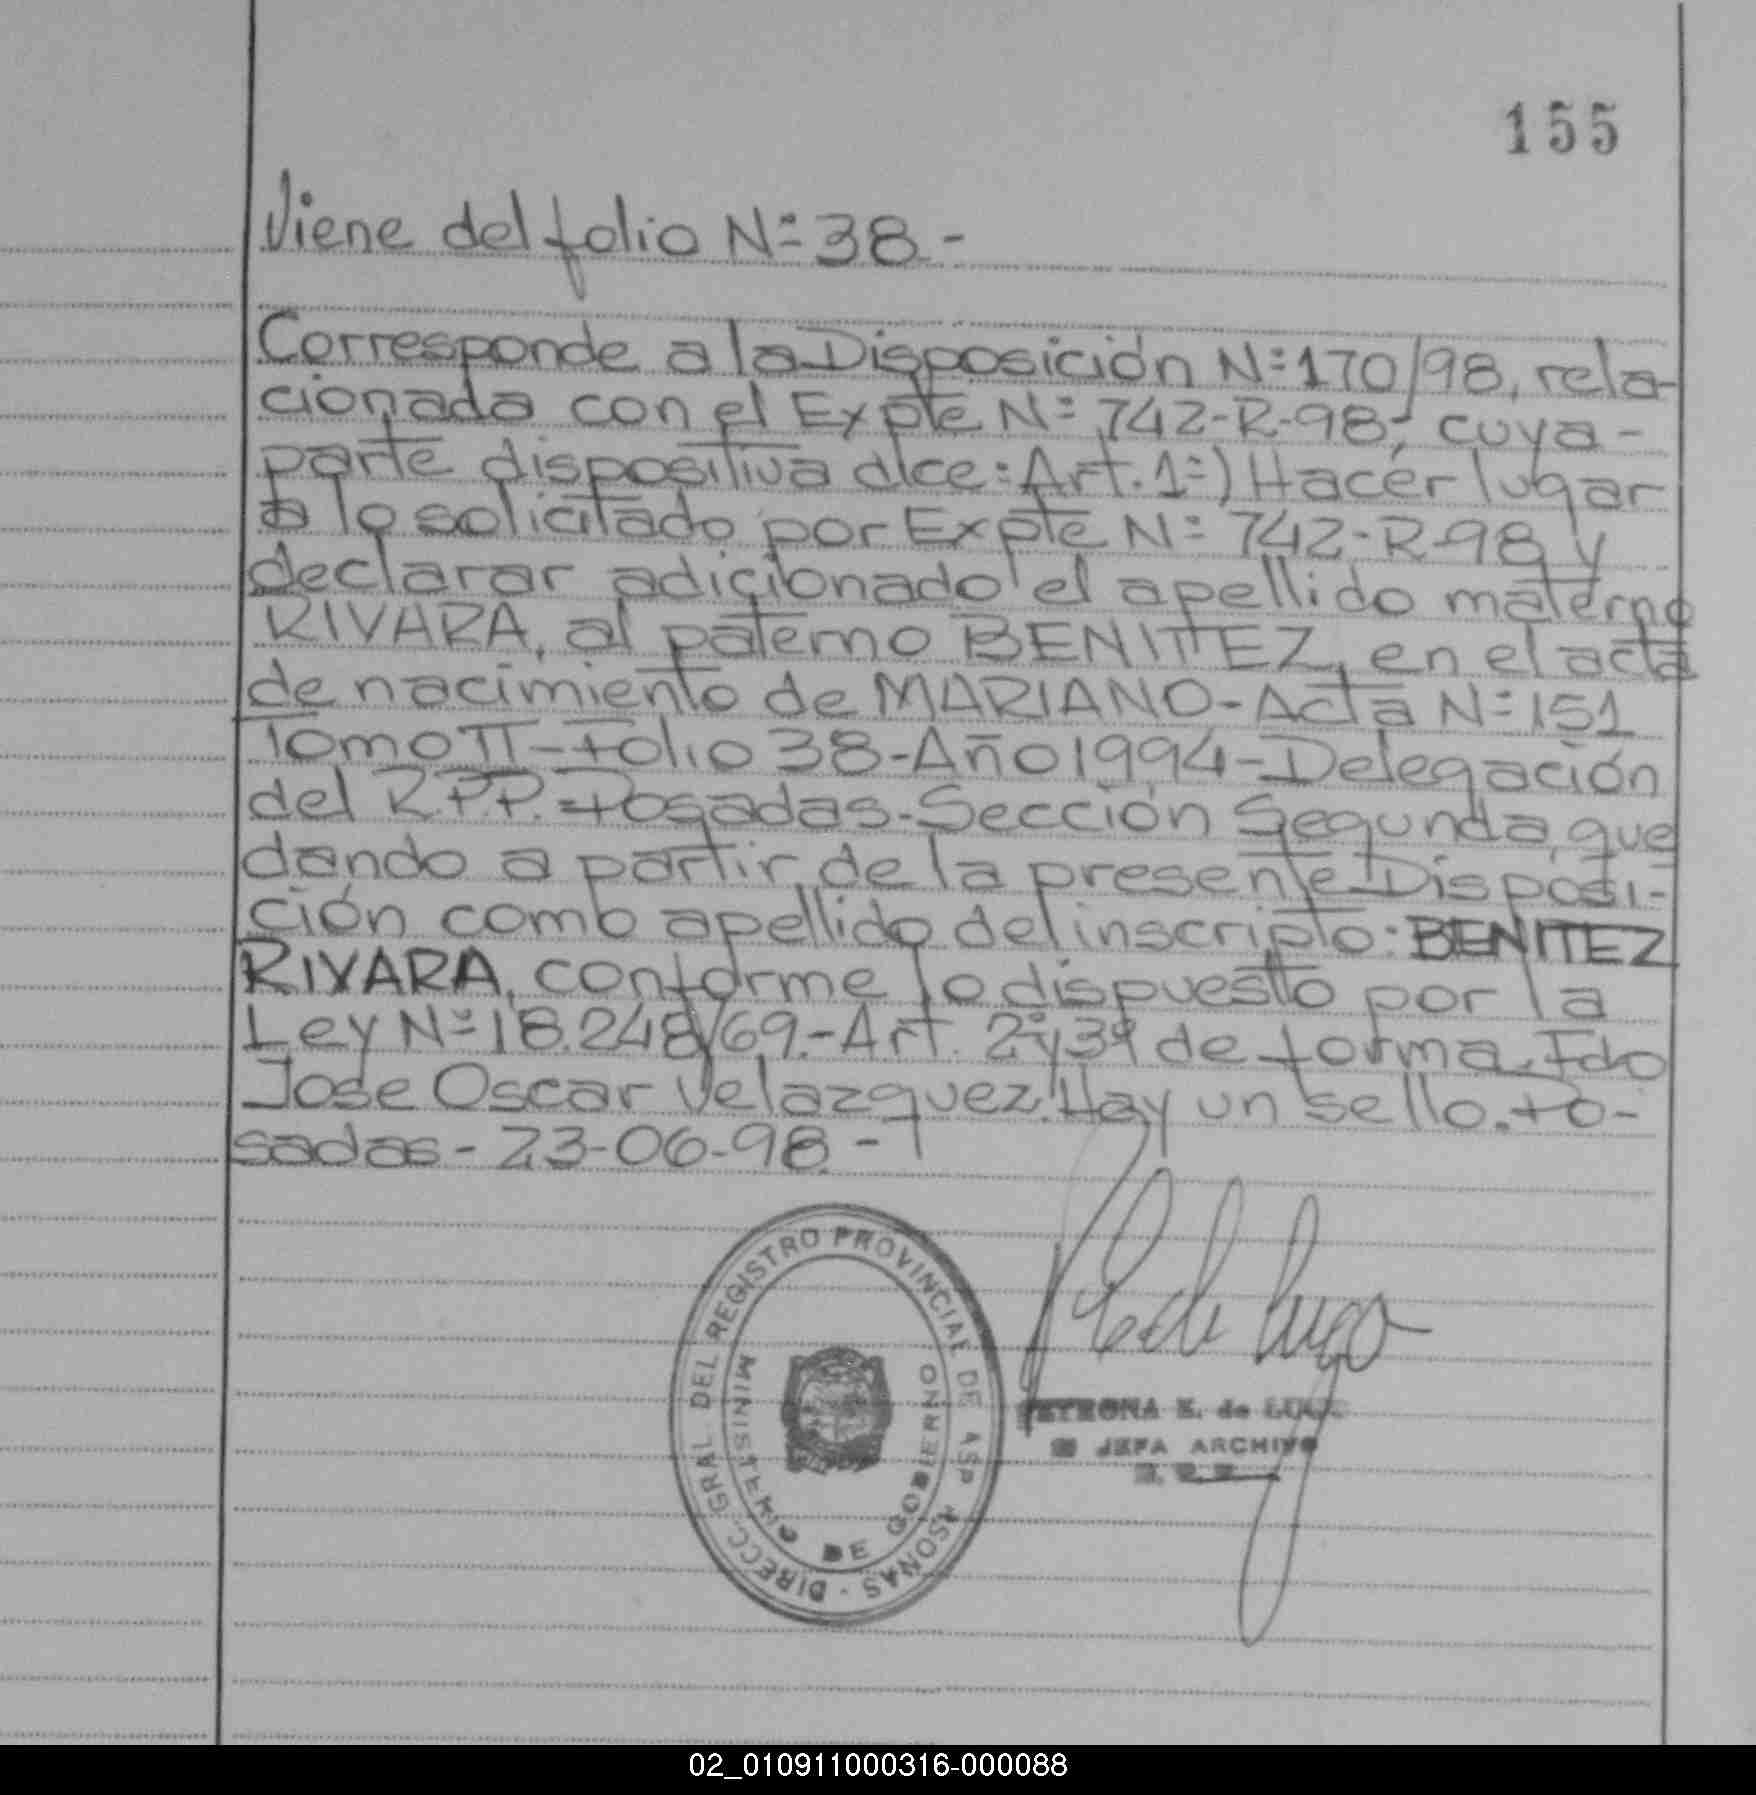 155
Viene del folio Nº 38.-
Corresponde a la Disposición Nº 170/98, rela-
cionada con el Expte Nº 742-R-98, cuya-
parte dispositiva dice: Art. 1º) Hacer lugar
a lo solicitado por Expte Nº 742-R-98 y
declarar adicionado el apellido materno
RIVARA, al paterno BENITEZ, en el acta
de nacimiento de MARIANO-Acta Nº 151
Tomo II-Folio 38-Año 1994-Delegación
del R.P.P. Posadas-Sección Segunda, que
dando a partir de la presente Disposi-
ción como apellido del inscripto: BENITEZ
RIVARA, conforme lo dispuesto por la
Ley Nº 18.248/69.-Art. 2º y 3º de forma. Fdo
Jose Oscar Velazquez. Hay un sello. Po-
sadas-23-06-98.-
DIRECC. GRAL DEL REGISTRO PROVINCIAL DE LAS PERSONAS
MINISTERIO DE GOBIERNO
PETRONA E. de LUGO
JEFA ARCHIVO
02_010911000316-000088